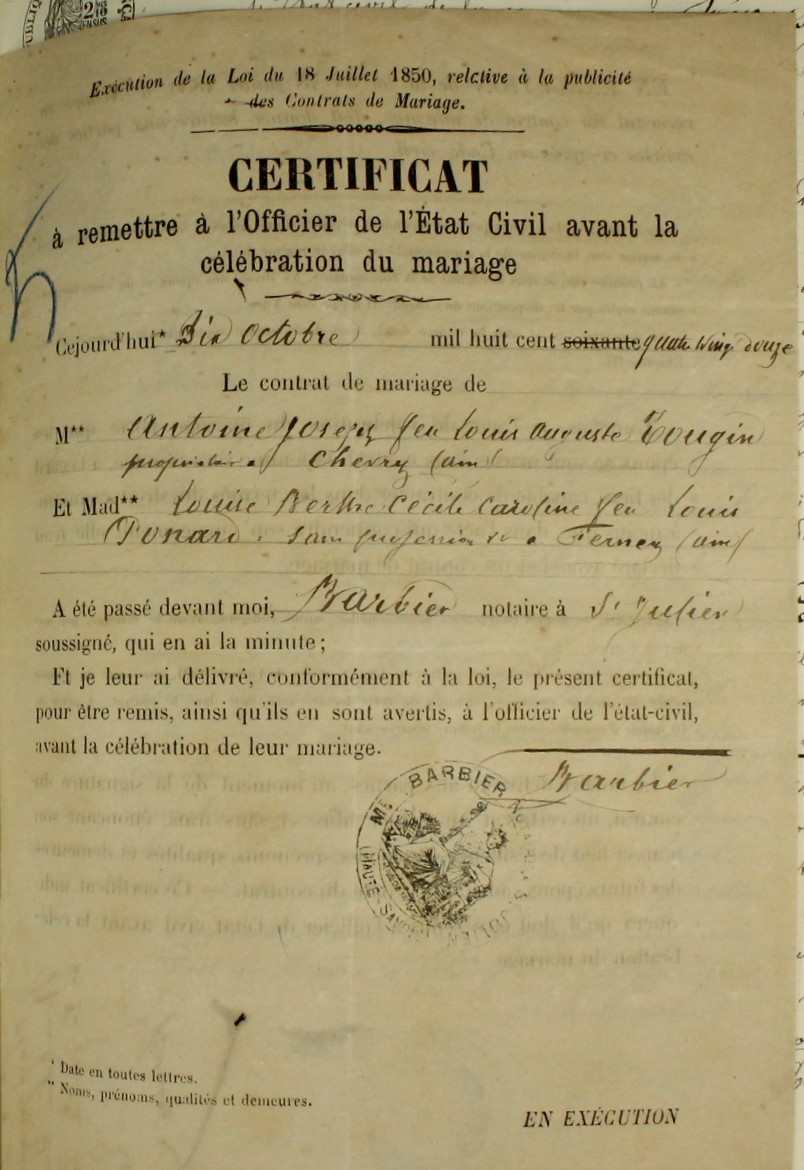 Exécution de la Loi du 18 Juillet 1850, relative à la publicité
des Contrats de Mariage.
CERTIFICAT
à remettre à l'Officier de l'État Civil avant la
célébration du mariage
Cejourd'hui* Dix Octobre mil huit cent soixante quatre vingt douze
Le contrat de mariage de
M** Antoine Joseph feu Louis Auguste Tougin
propriétaire à Chevry (ain)
Et Mad** Louise Berthe Cécile Caroline feu Louis
Ponard, sans profession à Ferney (ain)
A été passé devant moi, Barbier notaire à St Julien
soussigné, qui en ai la minute;
Et je leur ai délivré, conformément à la loi, le présent certificat,
pour être remis, ainsi qu'ils en sont avertis, à l'officier de l'état-civil,
avant la célébration de leur mariage.
Barbier
Me BARBIER
* Date en toutes lettres.
** Noms, prénoms, qualités et demeures.
EN EXÉCUTION